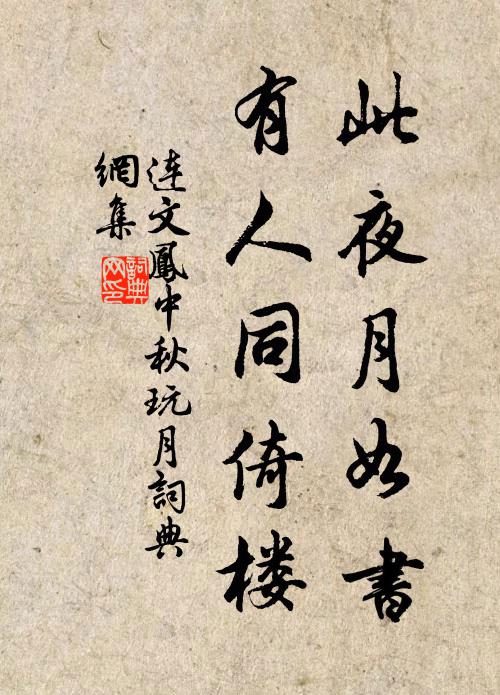 此夜月如書
有人同倚楼
連文鳳中秋玩月詞典
網集
詞典
网印